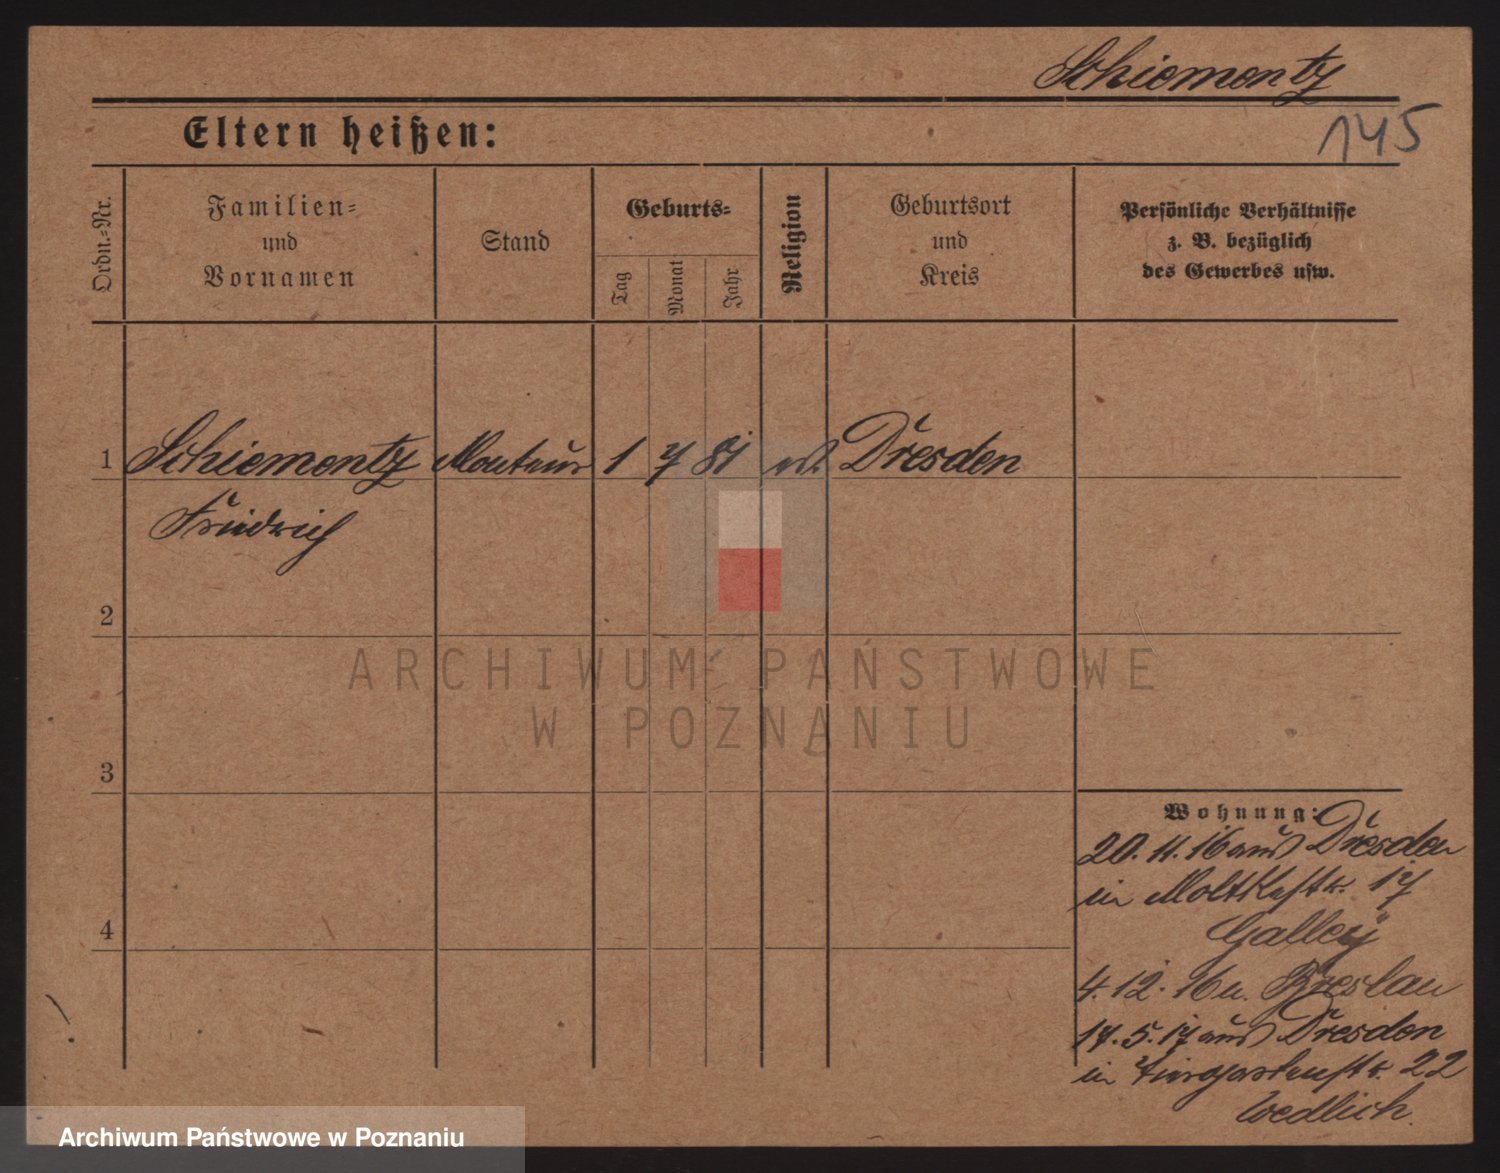 Schiementz
145
Eltern heißen:
Ordn.=Nr.
Familien=
und
Vornamen
Stand
Geburts=
Tag
Monat
Jahr
Religion
Geburtsort
und
Kreis
Persönliche Verhältnisse
z. B. bezüglich
des Gewerbes usw.
1 Schiementz Monteur 1 7 81 Dresden
Friedrich
2
3
4
Wohnung:
20. 11. 16 aus Dresden
in Moltkestr. 17
Galley
4. 12. 16 n. Breslau
17. 5. 17 aus Dresden
in Tiergartenstr. 22
Wedlich.
ARCHIWUM PAŃSTWOWE
W POZNANIU
Archiwum Państwowe w Poznaniu